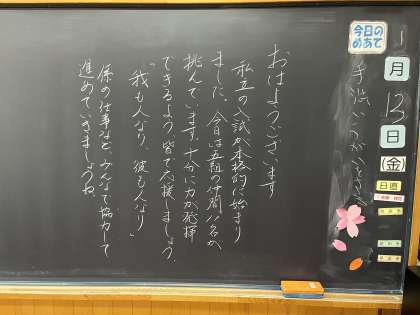 今日の
めあて
1月13日(金)
日直
手洗い うがいをする
おはようございます
私立の入試が本格的に始まり
ました。今日は五組の仲間12名が
挑んでいます。十分に力が発揮
できるよう、皆で応援しましょう。
「我も人なり、彼も人なり」
係の仕事など、みんなで協力して
進めていきましょうね。